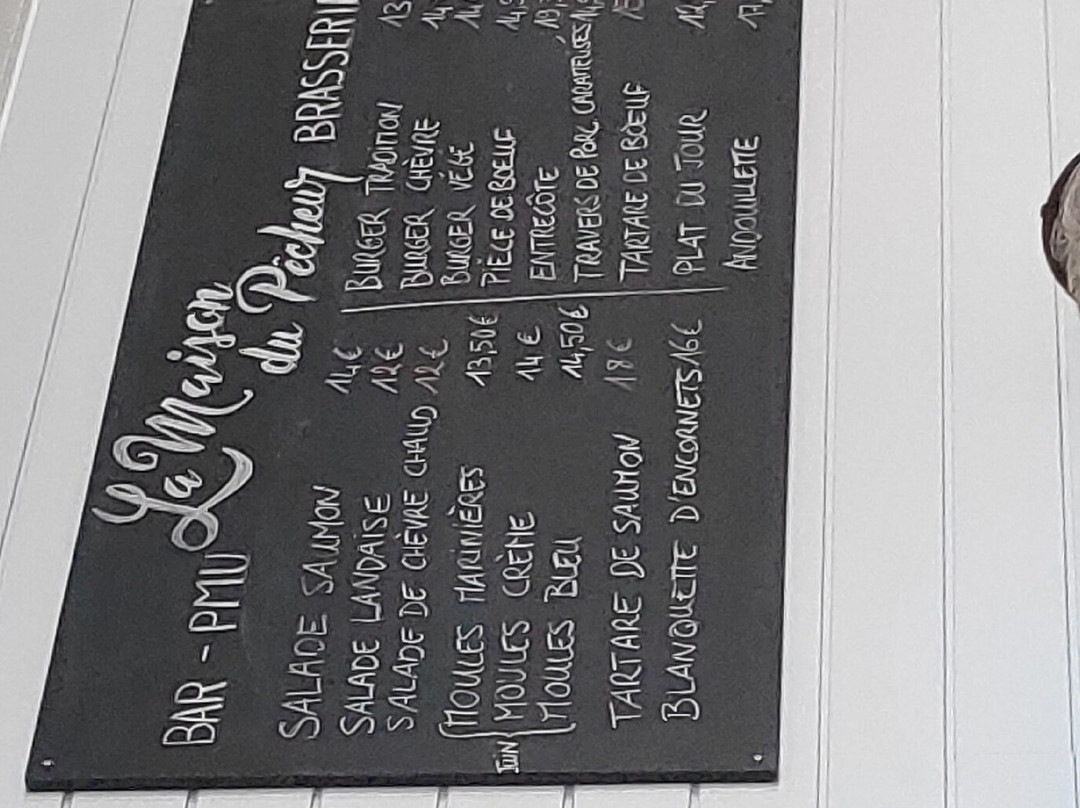 BAR - PMU
La Maison
du Pêcheur
BRASSERI
SALADE SAUMON 14€
SALADE LANDAISE 12€
SALADE DE CHÈVRE CHAUD 12€
MOULES MARINIÈRES 13,50€
Juin MOULES CRÈME 14€
MOULES BLEU 14,50€
TARTARE DE SAUMON 18€
BLANQUETTE D'ENCORNETS 16€
BURGER TRADITION 13
BURGER CHÈVRE
BURGER VÉGÉ
PIÈCE DE BOEUF
ENTRECÔTE
TRAVERS DE PORC
TARTARE DE BOEUF
PLAT DU JOUR
ANDOUILLETTE 17,